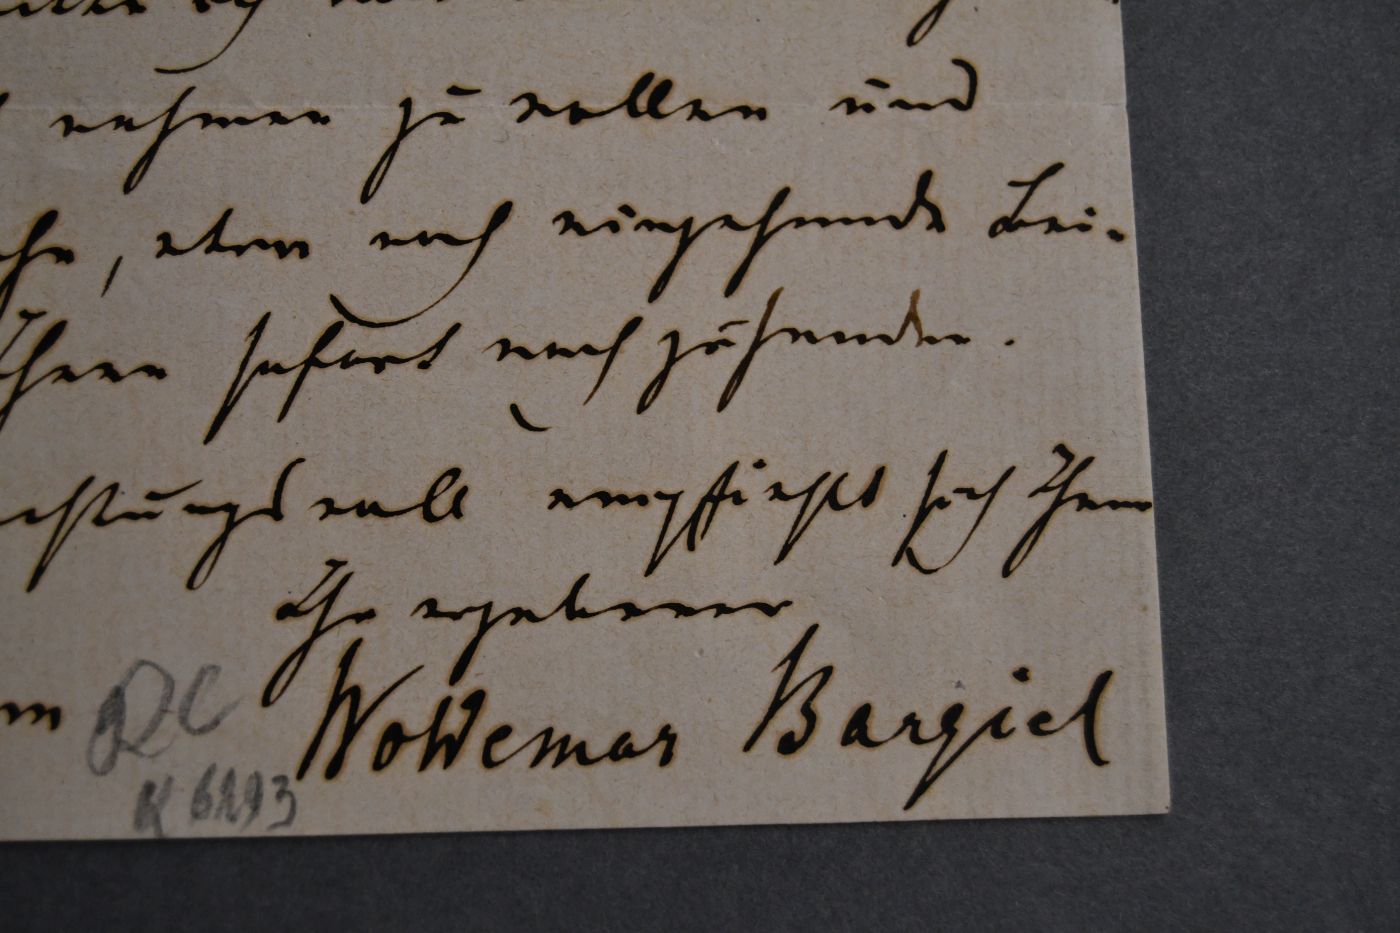 nehmen zu wollen und
etwa noch eingehende Bei-
Ihnen sofort nach zu senden.
achtungsvoll empfiehlt sich Ihnen
Ihr ergebener
Woldemar Bargiel
K 6193